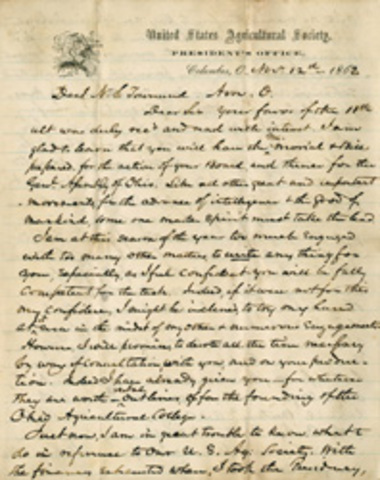 United States Agricultural Society.
PRESIDENT'S OFFICE,
Columbus, O. Nov. 12th 1862
N. S. Townsend Avon. O.
Dear Sir Your favor of the 11th
ult was duly rec'd and read with interest. I am
glad to learn that you will have the memorial &
prepared, for the action of your Board and thence for the
Genl Assembly of Ohio. Like all other great and important
movements for the advance of intelligence & the good of
mankind, some one master spirit must take the lead
I am at this season of the year too much engaged
with too many other matters to write any thing for
you, especially, as I feel confident you will be fully
competent for the task. Indeed, if it were not for this
my confidence, I might be inclined to try my hand
at, even in the midst of my other & numerous engagements
However I will promise to devote all the time necessary
by way of consultation with you, and on your produc-
tion. Indeed I have already given you—for whatever
they are worth— outlines of for the founding of the
Ohio Agricultural College.
Just now, I am in great trouble to know, what to
do in reference to Our U. S. Ag. Society. With
the finances exhausted when, I took the Presidency,